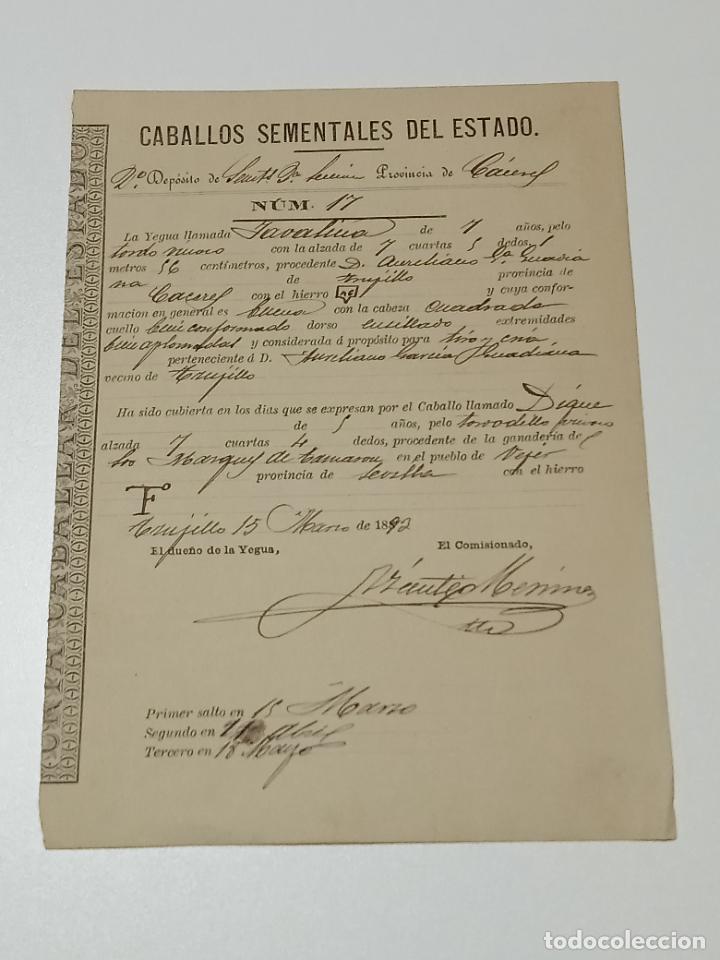 CABALLOS SEMENTALES DEL ESTADO.
2º Depósito de Provincia de Cáceres
NÚM. 17
La Yegua llamada de 7 años, pelo
tordo con la alzada de 7 cuartas 5 dedos 1
metros 56 centímetros, procedente D. Aureliano Gª Guadia
na de Trujillo provincia de
Caceres con el hierro y cuya confor-
macion en general es Buena con la cabeza Cuadrada
cuello bien conformado dorso ensillado extremidades
bien aplomadas y considerada á propósito para tiro y cria
perteneciente á D. Aureliano Garcia Guadiana
vecino de Trujillo
Ha sido cubierta en los dias que se expresan por el Caballo llamado Dique
de 5 años, pelo
alzada 7 cuartas 4 dedos, procedente de la ganadería del
Marques de Tamaron en el pueblo de Vejer
provincia de Sevilla con el hierro
Trujillo 15 Marzo de 1892
El dueño de la Yegua, El Comisionado,
Primer salto en 15 Marzo
Segundo en Abril
Tercero en 18 Mayo
CRIA CABALLAR DEL ESTADO
todocoleccion
todocoleccion.net